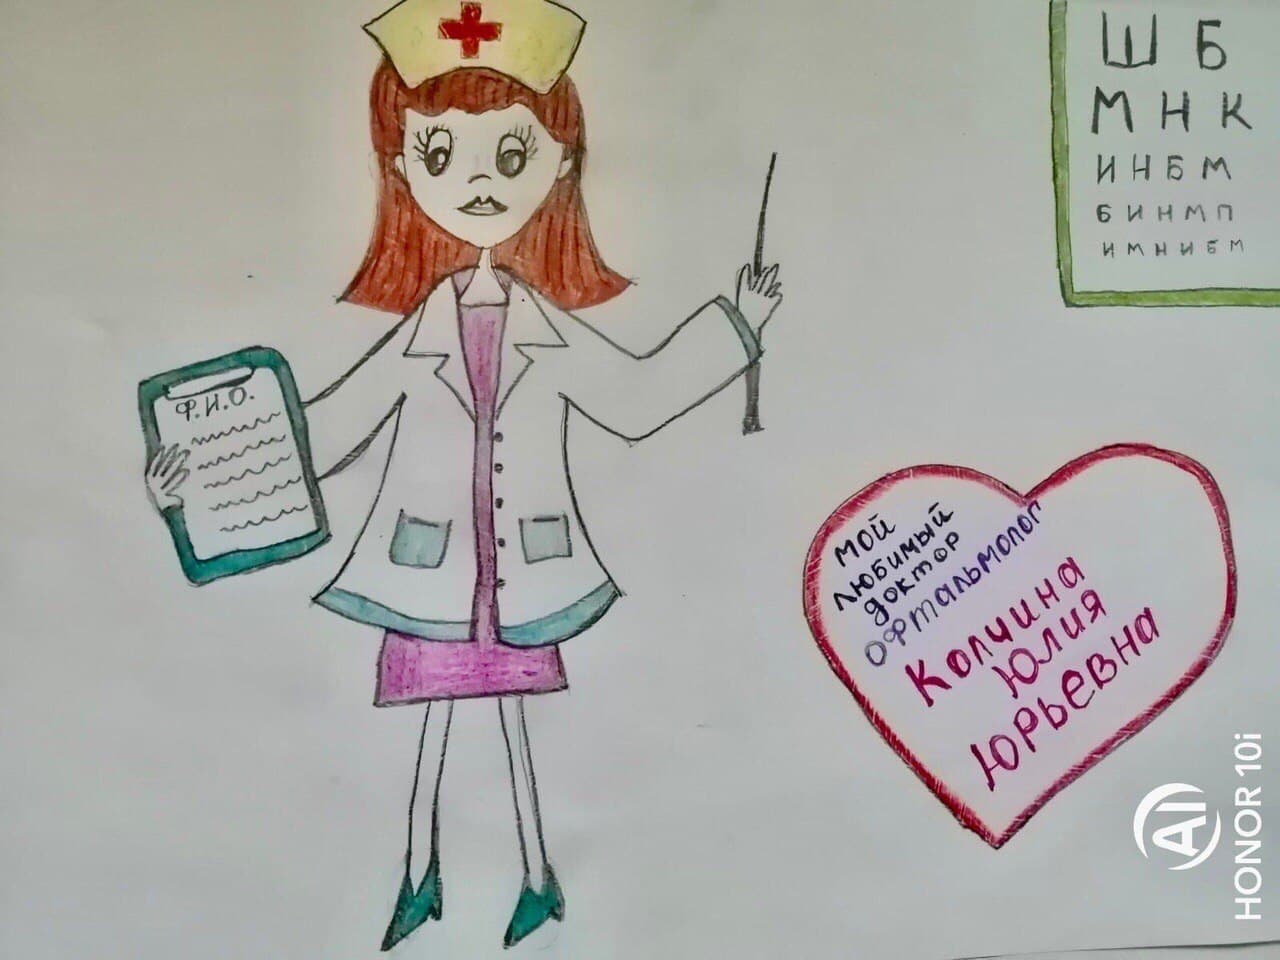 Ш Б
М Н К
И Н Б М
Б И Н М П
И М Н И Б М
Ф.И.О.
мой
любимый
доктор
офтальмолог
Колчина
Юлия
Юрьевна
AI
HONOR 10i